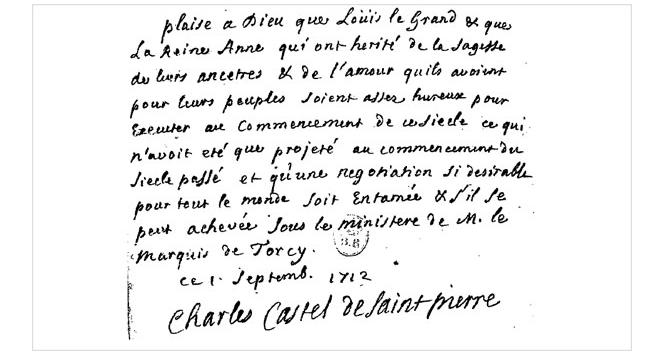 plaise a Dieu que Loüis le Grand & que
La Reine Anne qui ont herité de la sagesse
de leurs ancetres & de l'amour quils avoient
pour leurs peuples soient assez hureux pour
Executer au Commencement de ce siecle ce qui
n'avoit eté que projeté au commencement du
siecle passé et qu'une negotiation si desirable
pour tout le monde soit Entamée & s'il se
peut achevée sous le ministere de M. le
Marquis de Torcy.
ce 1. Septemb. 1712
Charles Castel de Saint pierre